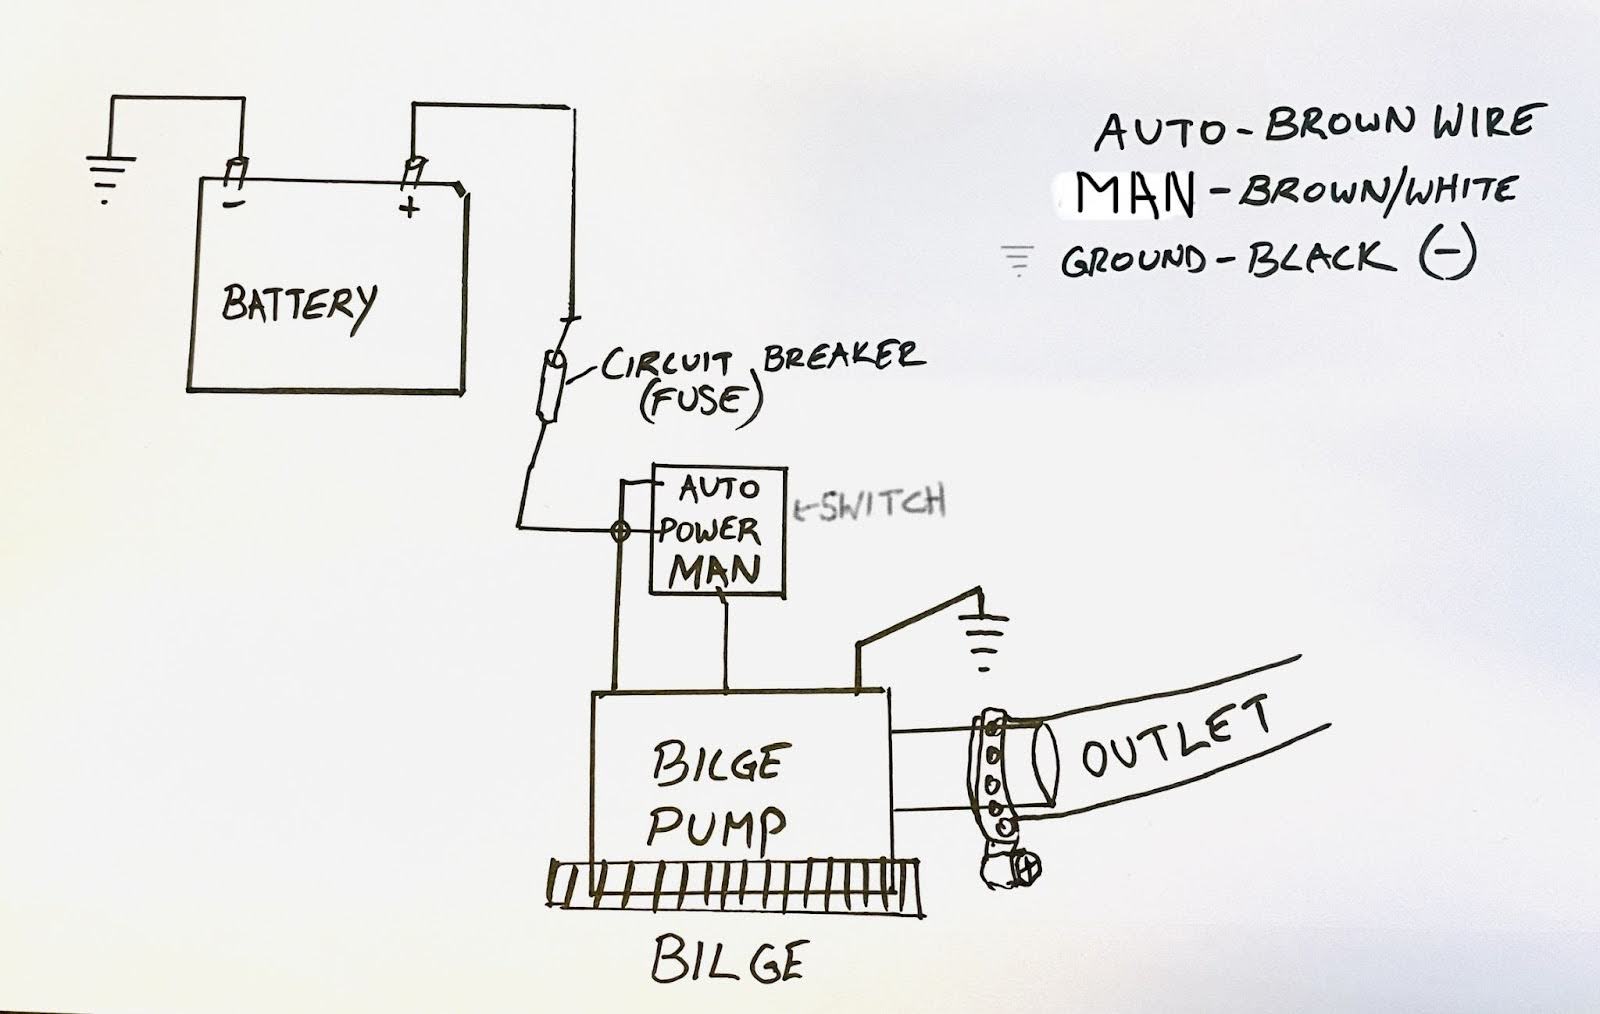 AUTO - BROWN WIRE
MAN - BROWN/WHITE
GROUND - BLACK (-)
- +
BATTERY
CIRCUIT BREAKER
(FUSE)
AUTO
POWER
MAN
←SWITCH
BILGE
PUMP
OUTLET
BILGE